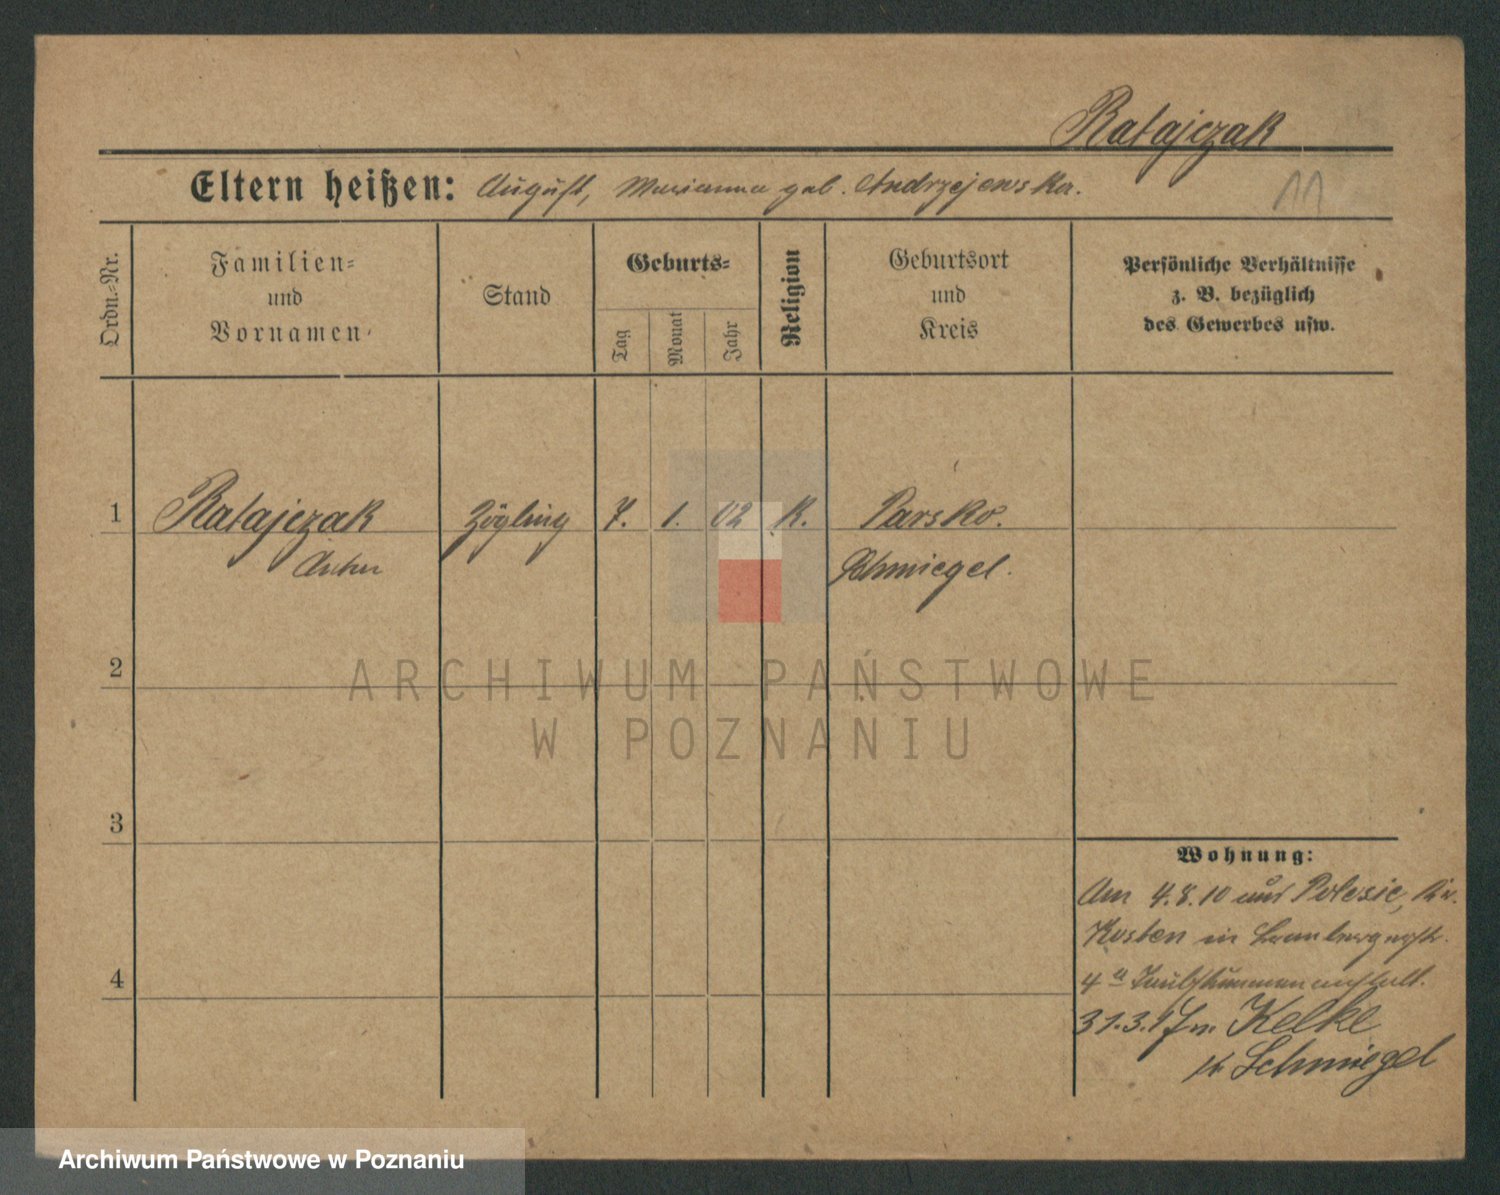 Ratajczak
Eltern heißen: August, Marianna geb. Andrzejewska.
11
Ordn.-Nr.
Familien-
und
Vornamen
Stand
Geburts-
Tag
Monat
Jahr
Religion
Geburtsort
und
Kreis
Persönliche Verhältnisse
z. B. bezüglich
des Gewerbes usw.
1 Ratajczak Zögling 7. 1. 02 K. Parsko.
Schmiegel.
2
ARCHIWUM PAŃSTWOWE
W POZNANIU
3
4
Wohnung:
Am 4.8.10 aus Polesie, Kr.
Kosten in Brombergerstr.
4a Taubstummenanstalt.
31.3.17 n. Kelke
Kr Schmiegel
Archiwum Państwowe w Poznaniu